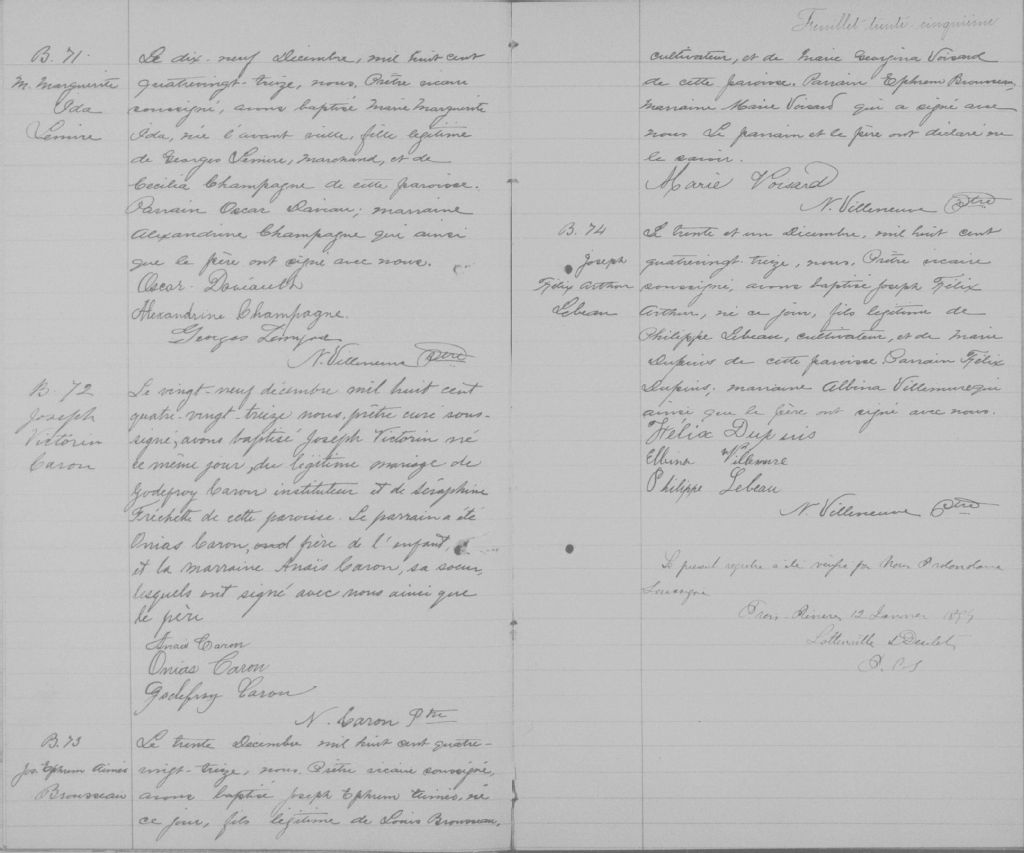 Feuillet trente-cinquième
B. 71.
M. Marguerite
Ida
Lemire
Le dix-neuf Décembre, mil huit cent
quatrevingt-treize, nous, Prêtre vicaire
soussigné, avons baptisé Marie Marguerite
Ida, née l'avant veille, fille légitime
de Georges Lemire, marchand, et de
Cecilia Champagne de cette paroisse.
Parrain Oscar Daviau; marraine
Alexandrine Champagne qui ainsi
que le père ont signé avec nous.
Oscar Daviault
Alexandrine Champagne.
Georges
N. Villeneuve Ptre
B. 72
Joseph
Victorin
Caron
Le vingt-neuf décembre mil huit cent
quatre-vingt treize nous, prêtre curé sous-
signé, avons baptisé Joseph Victorin né
le même jour, du légitime mariage de
Godefroy Caron instituteur et de Séraphine
Fréchette de cette paroisse. Le parrain a été
Onias Caron, frère de l'enfant,
et la marraine Anaïs Caron, sa soeur,
lesquels ont signé avec nous ainsi que
le père
Anais Caron
Onias Caron
Godefroy Caron
N. Caron Ptre
B. 73
Jos. Ephrem Aimé
Brousseau
Le trente Decembre mil huit cent quatre-
vingt-treize, nous, Prêtre vicaire soussigné,
avons baptisé Joseph Ephrem Aimé, né
ce jour, fils légitime de Louis Brousseau,
cultivateur, et de Marie Georgina Voisard
de cette paroisse. Parrain Ephrem Brousseau,
marraine Marie Voisard qui a signé avec
nous Le parrain et le père ont déclaré ne
le savoir.
Marie Voisard
N. Villeneuve Ptre
B. 74
Joseph
Félix Arthur
Lebeau
Le trente et un Décembre, mil huit cent
quatrevingt-treize, nous, Prêtre vicaire
soussigné, avons baptisé Joseph Félix
Arthur, né ce jour, fils légitime de
Philippe Lebeau, cultivateur, et de Marie
Dupuis de cette paroisse Parrain Félix
Dupuis; marraine Albina Villemure qui
ainsi que le père ont signé avec nous.
Félix Dupuis
Elbina Villemure
Philippe Lebeau
N. Villeneuve Ptre
Le present registre a été vérifié par Nous Protonotaire
Soussigné
Trois-Rivieres 12 Janvier
P. C. S